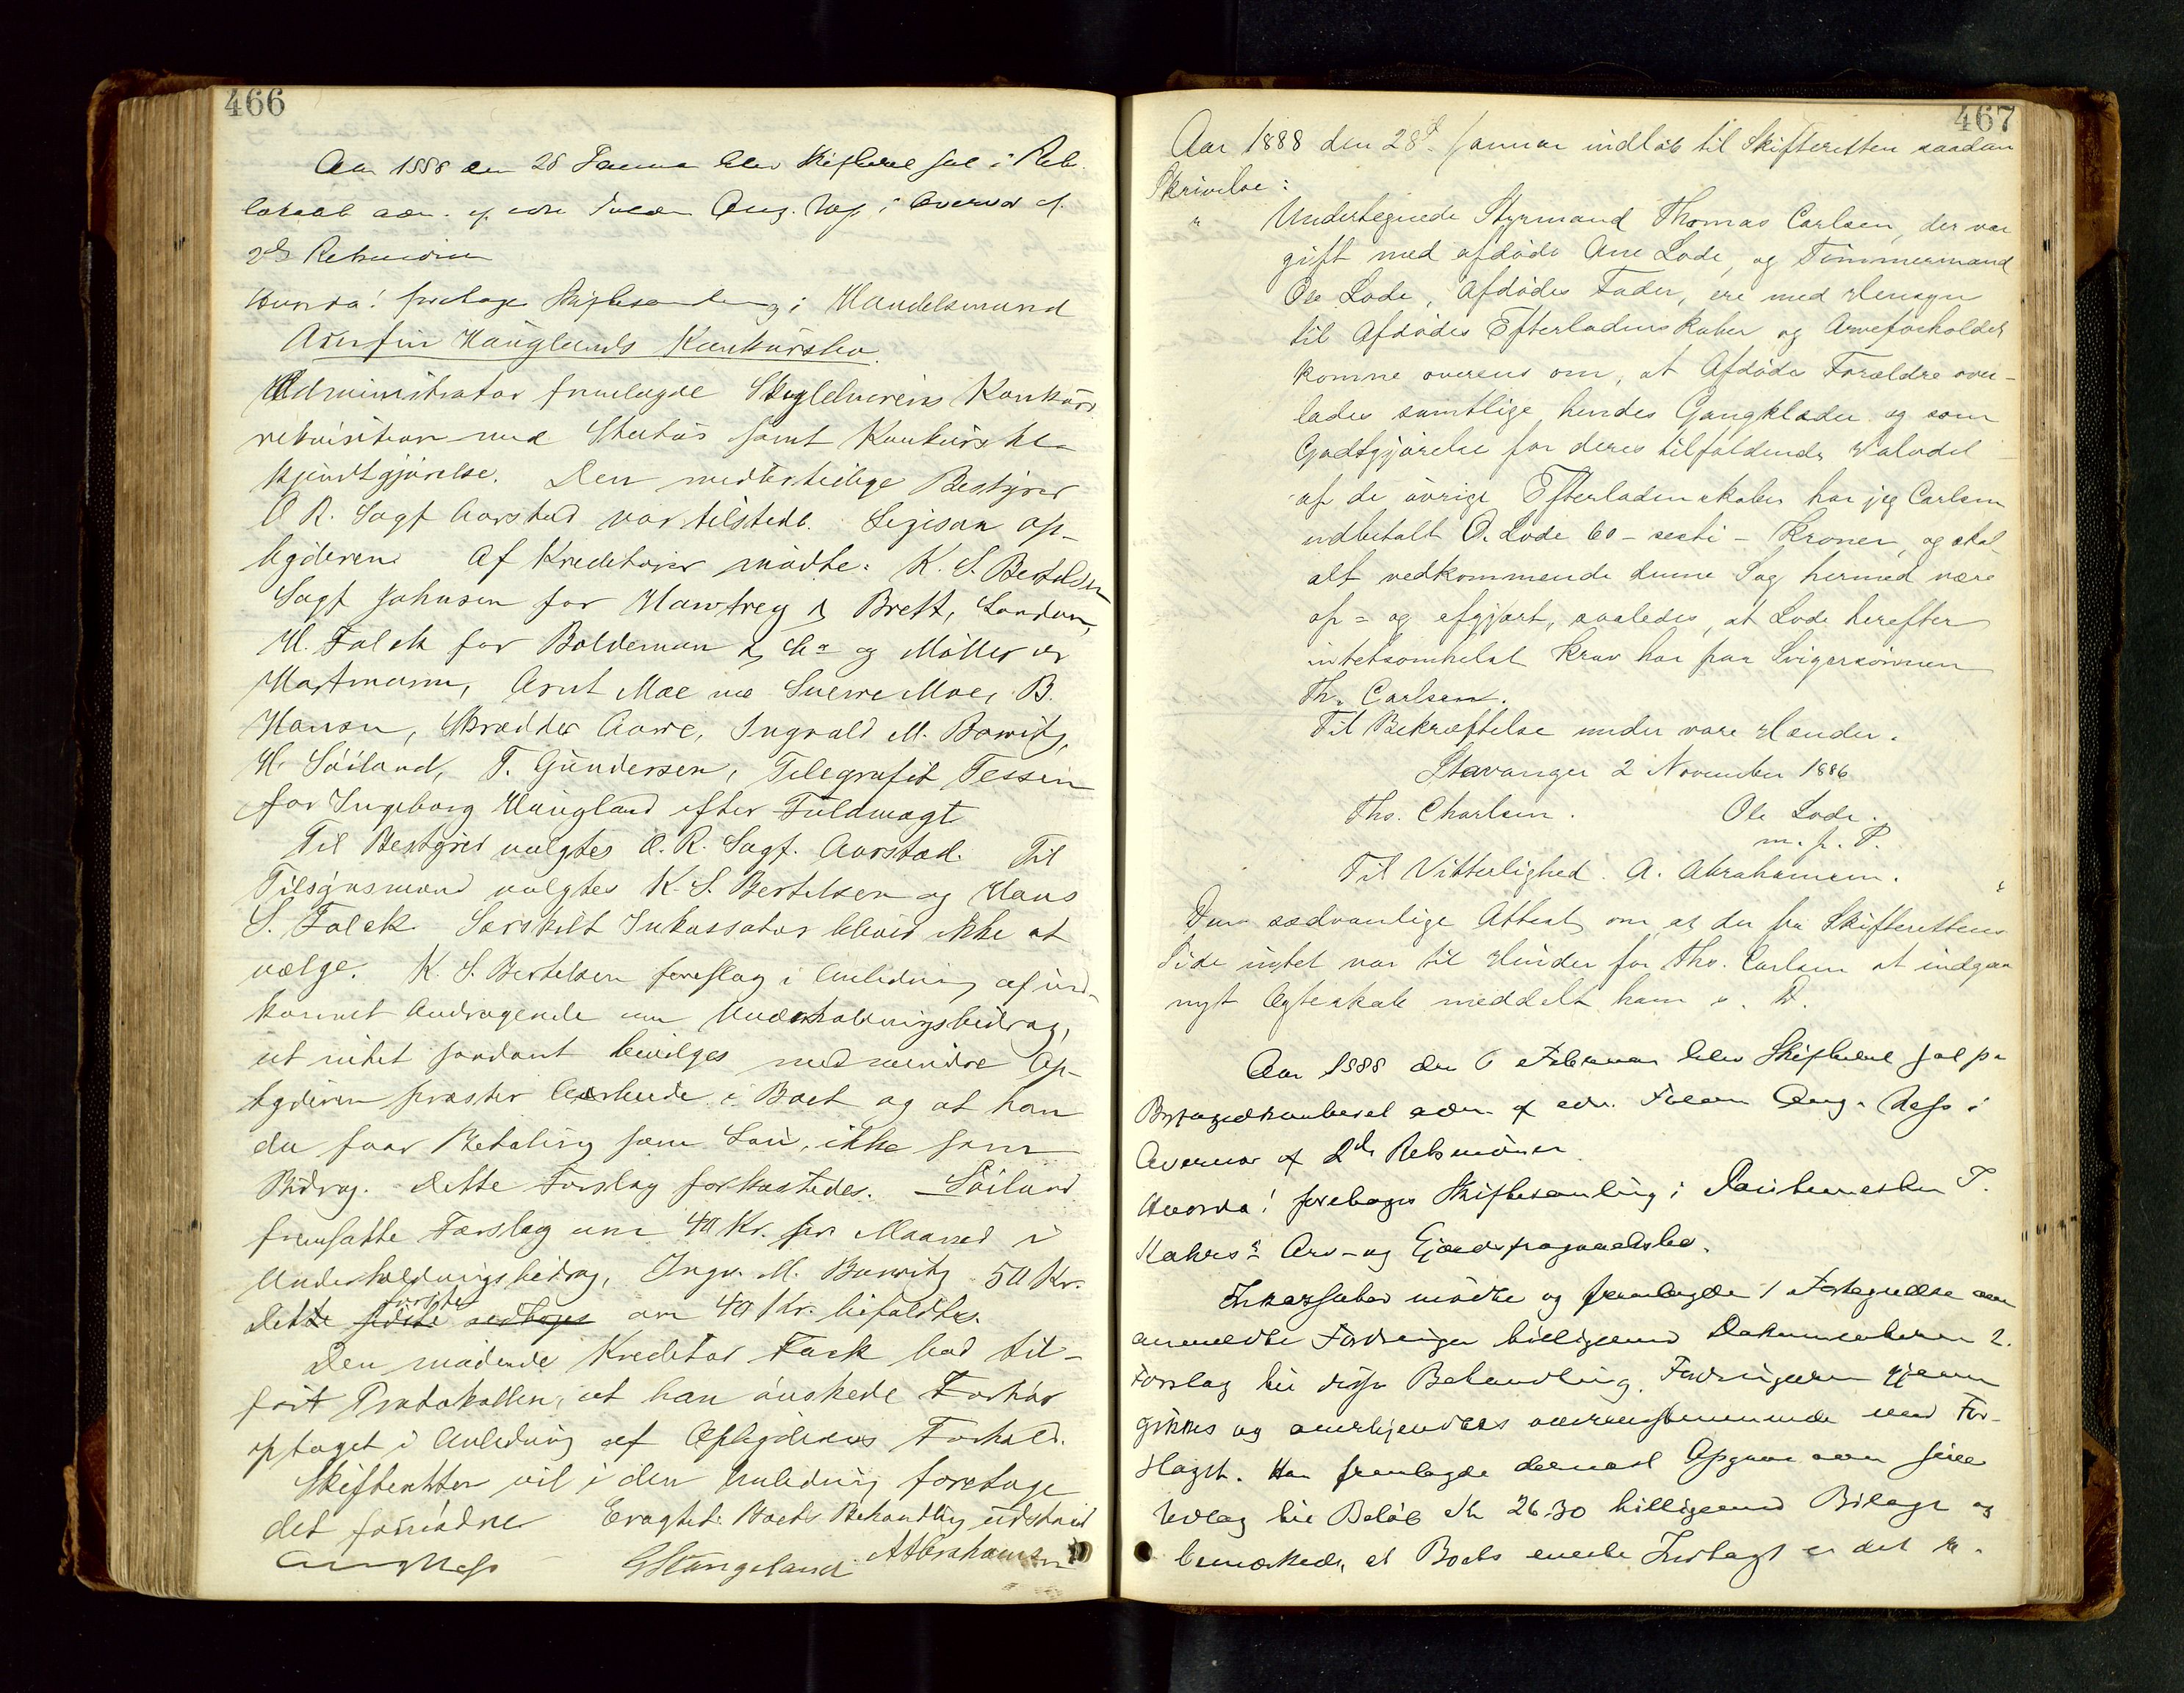 466
Aar 1888 den 28 Januar blev Skifteret sat i Rets-
lokalet adm. af edsv Fuldm Aug. Næss i Overvær af
2de Retsvidner
Hvorda! foretoges Skiftesamling i Handelsmand
Arnfin Hauglands Konkursbo.
Administrator fremlagde Skyldnerens Konkurs
rekvisition med Status samt Konkursbe-
kjendtgjørelse. Den midlertidige Bestyrer
O. R. Sagf Aarstad var tilstede. Ligesaa op-
bydren. Af Kreditorer mødte: K. S. Bertelsen
Sagf Johnsen for Hawtrey & Brett, London,
H. Falck for Boldeman & Co og Møller &
Hartmann, Arnt Moe Moe, B.
Hansen, Skrædder Aarre, Ingvald M. Bowitz,
H. Söiland, T. Gundersen, Telegrafist Tessin
for Ingeborg Haugland efter Fuldmagt
Til Bestyrer valgtes O. R. Sagf. Aarstad. Til
Tilsynsmænd valgtes K. S. Bertelsen og Hans
S. Falck. Særskilt Inkassator blev ikke at
vælge. K. S. Bertelsen foreslog i Anledning af ind-
kommet Andragende om Underholdningsbidrag,
at intet saadant bevilges medmindre Op-
byderen præster Arbeide i Boet og at han
da faar Betaling som Løn, ikke som
Bidrag. Dette Forslag forkastedes. Söiland
fremsatte Forslag om 40 Kr. pr Maaned i
Underholdningsbidrag, Ingv. M. Bowitz 50 Kr.
første
Dette sidste om 40 Kr. bifaldtes.
Den mødende Kreditor Falck bad til-
ført Protokollen, at han ønskede Forhør
optaget i Anledning af Opbyderens Forhold.
Skifteretten vil i den Anledning foretage
det fornødne. Eragtet: Boets Behandling udstaar
Aug Næss G Stangeland A Abrahamsen
467
Aar 1888 den 28de Januar indløb til Skifteretten saadan
Skrivelse:
" Undertegnede Styrmand Thomas Carlsen, der var
gift med afdøde Ane Lode, og Tømmermand
Ole Lode, Afdødes Fader, ere med Hensyn
til Afdødes Efterladenskaber og Arveforholdet
komne overens om, at Afdødes Forældre over-
lades samtlige hendes Gangklæder og som
Godtgjørelse for deres tilfaldende Halvdel
af de øvrige Efterladenskaber har jeg Carlsen
udbetalt O. Lode 60 - sexti - Kroner, og skal
alt vedkommende denne Sag hermed være
op- og afgjort, saaledes, at Lode herefter
intetsomhelst Krav har paa Svigersønnen
Th. Carlsen.
Til Bekræftelse under vore Hænder.
Stavanger 2 November 1886
Ths. Charlsen. Ole Lode.
m. p. P.
Til Vitterlighed: A. Abrahamsen. "
Den sædvanlige Attest om at der fra Skifterettens
Side intet var til Hinder for Ths. Carlsen at indgaa
nyt Ægteskab meddelt ham s. D.
Aar 1888 den 6 Februar blev Skifteret sat paa
Byfogedkontoret adm. af edsv. Fuldm Aug. Næss i
Overvær af 2de Retsvidner
Hvorda! foretoges Skiftesamling i T.
Kahrs's Arv- og Gjældsfragaaelsesbo.
Inkassator mødte og fremlagde 1 Fortegnelse over
anmeldte Fordringer tilligemed Dokumenterne 2.
Forslag til disses Behandling. Fordringerne gjennem
gikkes og anerkjendtes overensstemmende med For-
slaget. Han fremlagde dernæst Opgave over sine
Udlæg til Beløb Kr 26.30 tilligemed Bilage og
bemærkede, at Boets eneste Indtægt er det